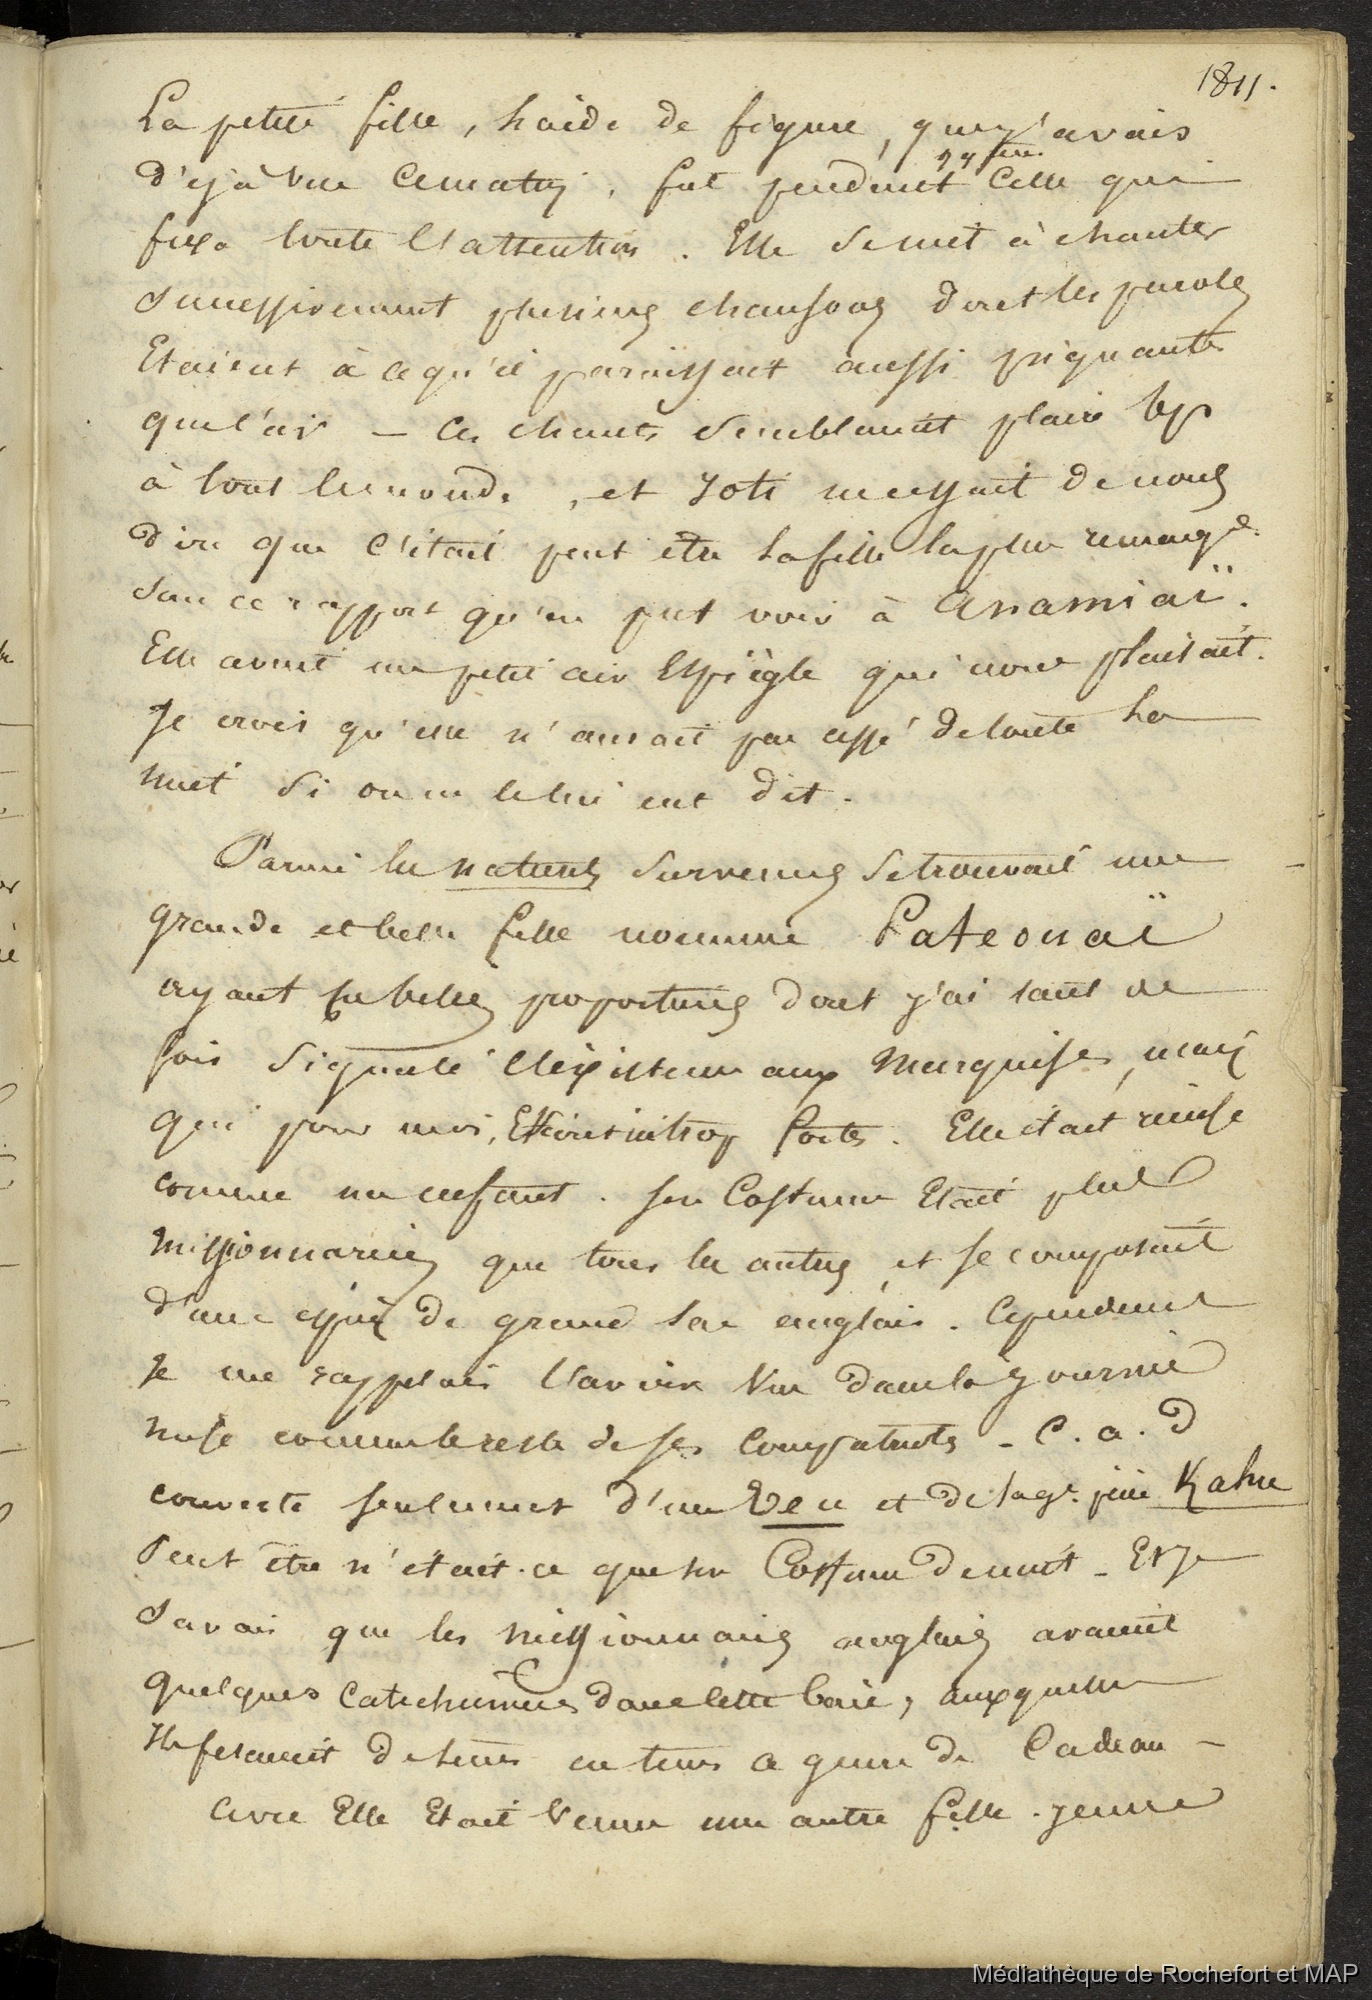 1811.
La petite fille, laide de figure, que j'avais
déjà vue ce matin, fut pendant qq tems celle qui
fixa toute l'attention. Elle se met à chanter
successivement plusieurs chansons dont les paroles
Etaient à ce qu'il paraissait aussi piquantes
que l'air — Ces chants semblaient plaire bp
à tout le monde, et Yoti ne cessait de nous
dire que c'était peut être la fille la plus remarqe
sous ce rapport qu'on put voir à Anamiaï.
Elle avait un petit air Espiègle qui nous plaisait.
Je crois qu'elle n'aurait pas cessé de toute la
nuit si on ne le lui eut dit.
Parmi les naturels survenus se trouvait une
grande et belle fille nommée Pateonaï
ayant ces belles proportions dont j'ai tant de
fois signalé l'éxistence aux Marquises, mais
qui pour moi, Etaient trop fortes. Elle était rieuse
comme un enfant. Son Costume Etait plus
missionnaire que tous les autres et se composait
d'une espèce de grand sac anglais. Cependant
Je me rappelais l'avoir vue dans la journée
mise comme le reste de ses compatriotes - C. a. d
couverte seulement d'un Eeu et de la gde pièe Kahu
Peut être n'était-ce que son Costume de nuit - Et je
savais que les missionnaires anglais avaient
quelques catechumènes dans cette baie, auxquelles
Ils fesaient de tems en tems ce genre de Cadeau -
Avec Elle Etait venue une autre fille jeune
Médiathèque de Rochefort et MAP